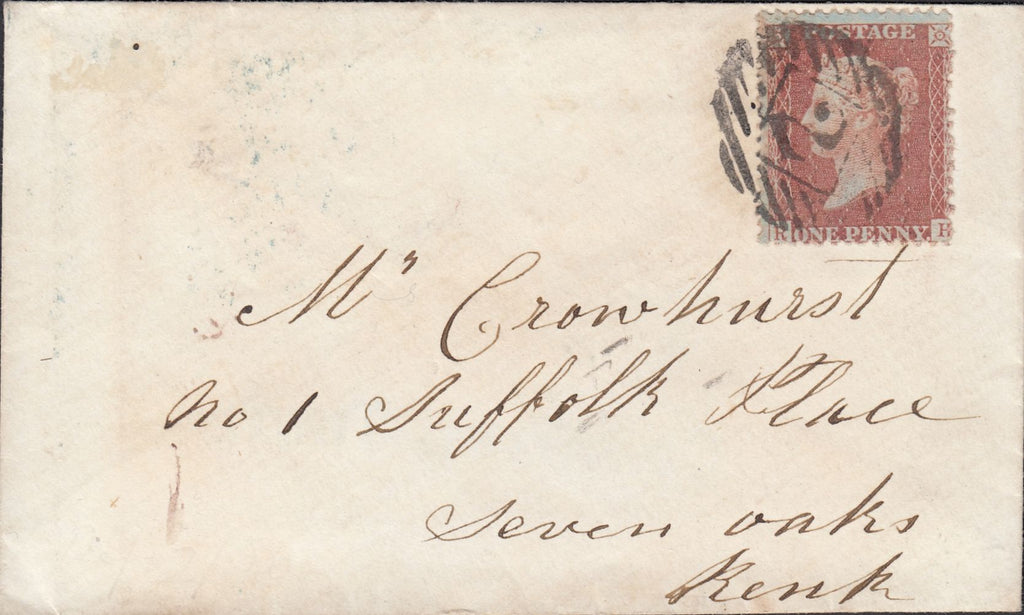 POSTAGE
R ONE PENNY. H
Mr Crowhurst
No 1 Suffolk Place
Seven oaks
Kent